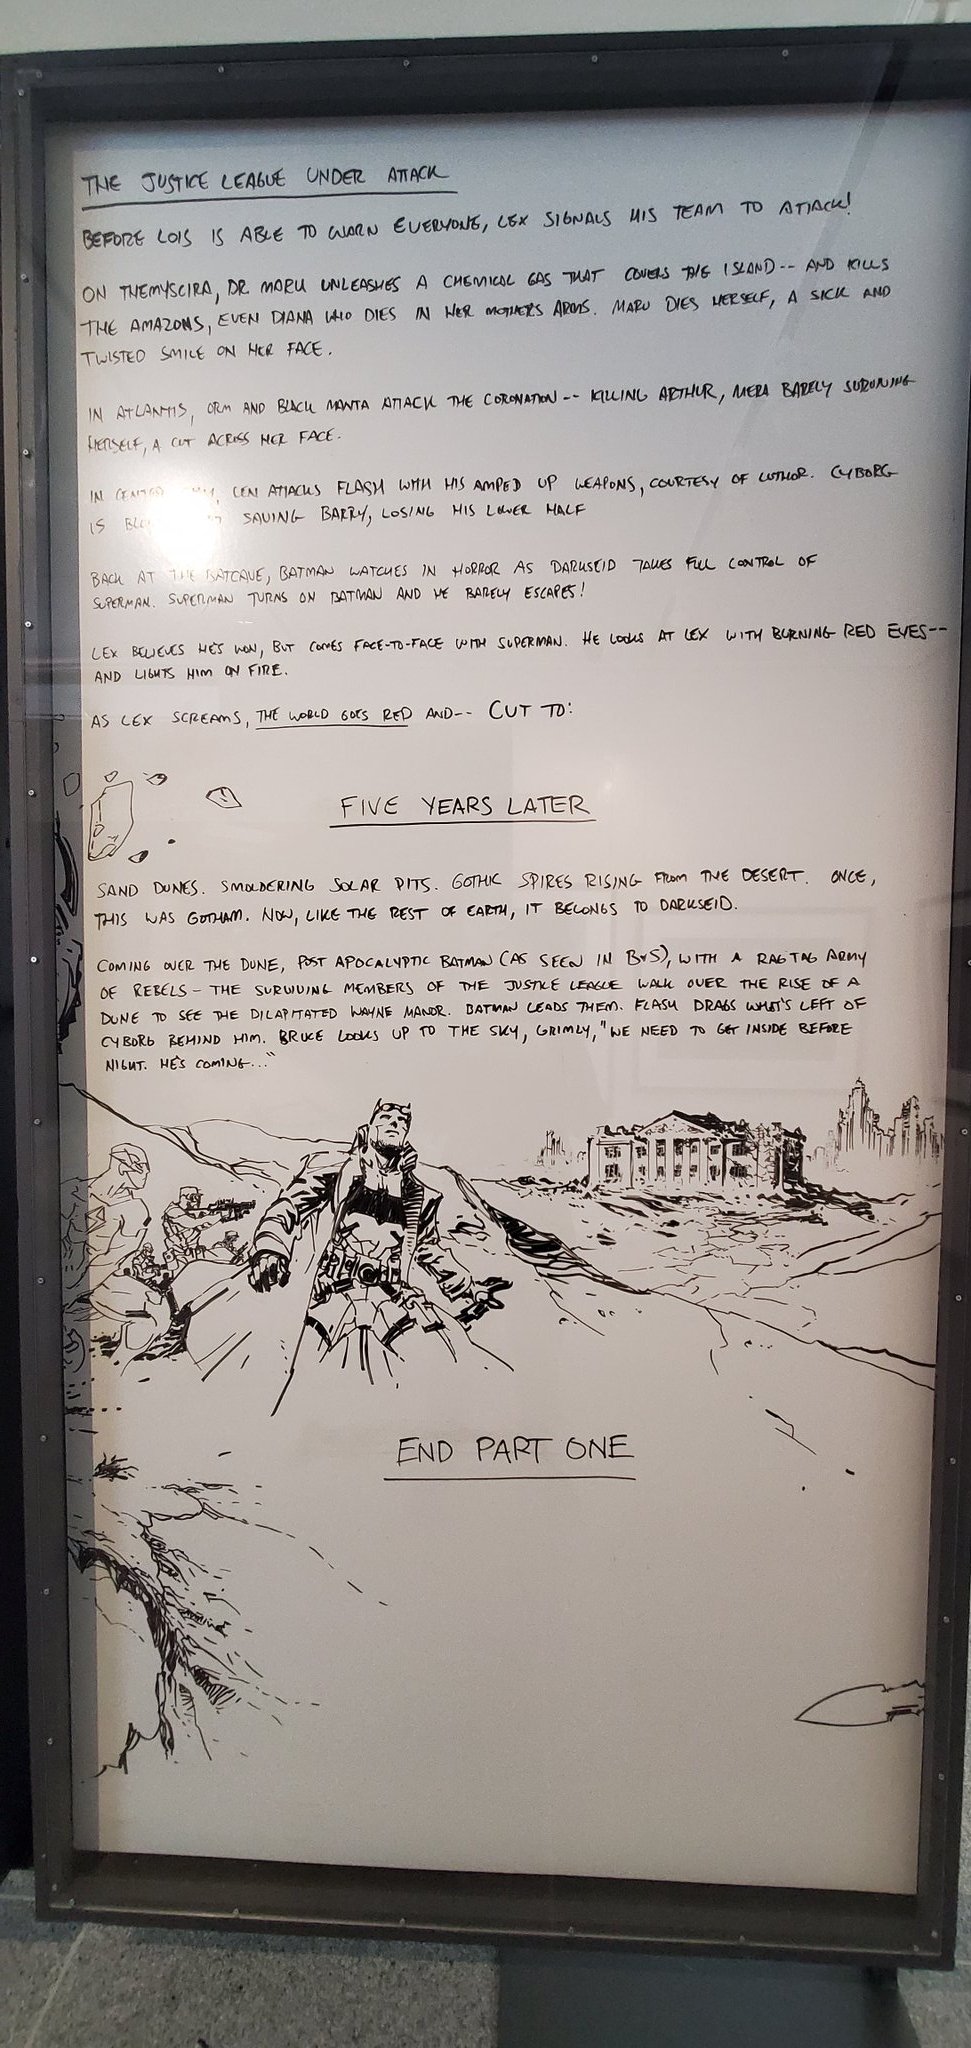 THE JUSTICE LEAGUE UNDER ATTACK
BEFORE LOIS IS ABLE TO WARN EVERYONE, LEX SIGNALS HIS TEAM TO ATTACK!
ON THEMYSCIRA, DR MARU UNLEASHES A CHEMICAL GAS THAT COVERS THE ISLAND-- AND KILLS
THE AMAZONS, EVEN DIANA WHO DIES IN HER MOTHERS ARMS. MARU DIES HERSELF, A SICK AND
TWISTED SMILE ON HER FACE.
IN ATLANTIS, ORM AND BLACK MANTA ATTACK THE CORONATION-- KILLING ARTHUR, MERA BARELY SURVIVING
HERSELF, A CUT ACROSS HER FACE.
IN LEN ATTACKS FLASH WITH HIS AMPED UP WEAPONS, COURTESY OF LUTHOR. CYBORG
IS SAVING BARRY, LOSING HIS LOWER HALF
BACK AT THE BATCAVE, BATMAN WATCHES IN HORROR AS DARKSEID TAKES FULL CONTROL OF
SUPERMAN. SUPERMAN TURNS ON BATMAN AND HE BARELY ESCAPES!
LEX BELIEVES HE'S WON, BUT COMES FACE-TO-FACE WITH SUPERMAN. HE LOOKS AT LEX WITH BURNING RED EYES--
AND LIGHTS HIM ON FIRE.
AS LEX SCREAMS, THE WORLD GOES RED AND-- CUT TO:
FIVE YEARS LATER
SAND DUNES. SMOLDERING SOLAR PITS. GOTHIC SPIRES RISING FROM THE DESERT. ONCE,
THIS WAS GOTHAM. NOW, LIKE THE REST OF EARTH, IT BELONGS TO DARKSEID.
COMING OVER THE DUNE, POST APOCALYPTIC BATMAN (AS SEEN IN BvS), WITH A RAGTAG ARMY
OF REBELS - THE SURVIVING MEMBERS OF THE JUSTICE LEAGUE WALK OVER THE RISE OF A
DUNE TO SEE THE DILAPITATED WAYNE MANOR. BATMAN LEADS THEM. FLASH DRAGS WHAT'S LEFT OF
CYBORG BEHIND HIM. BRUCE LOOKS UP TO THE SKY, GRIMLY, "WE NEED TO GET INSIDE BEFORE
NIGHT. HE'S COMING..."
END PART ONE